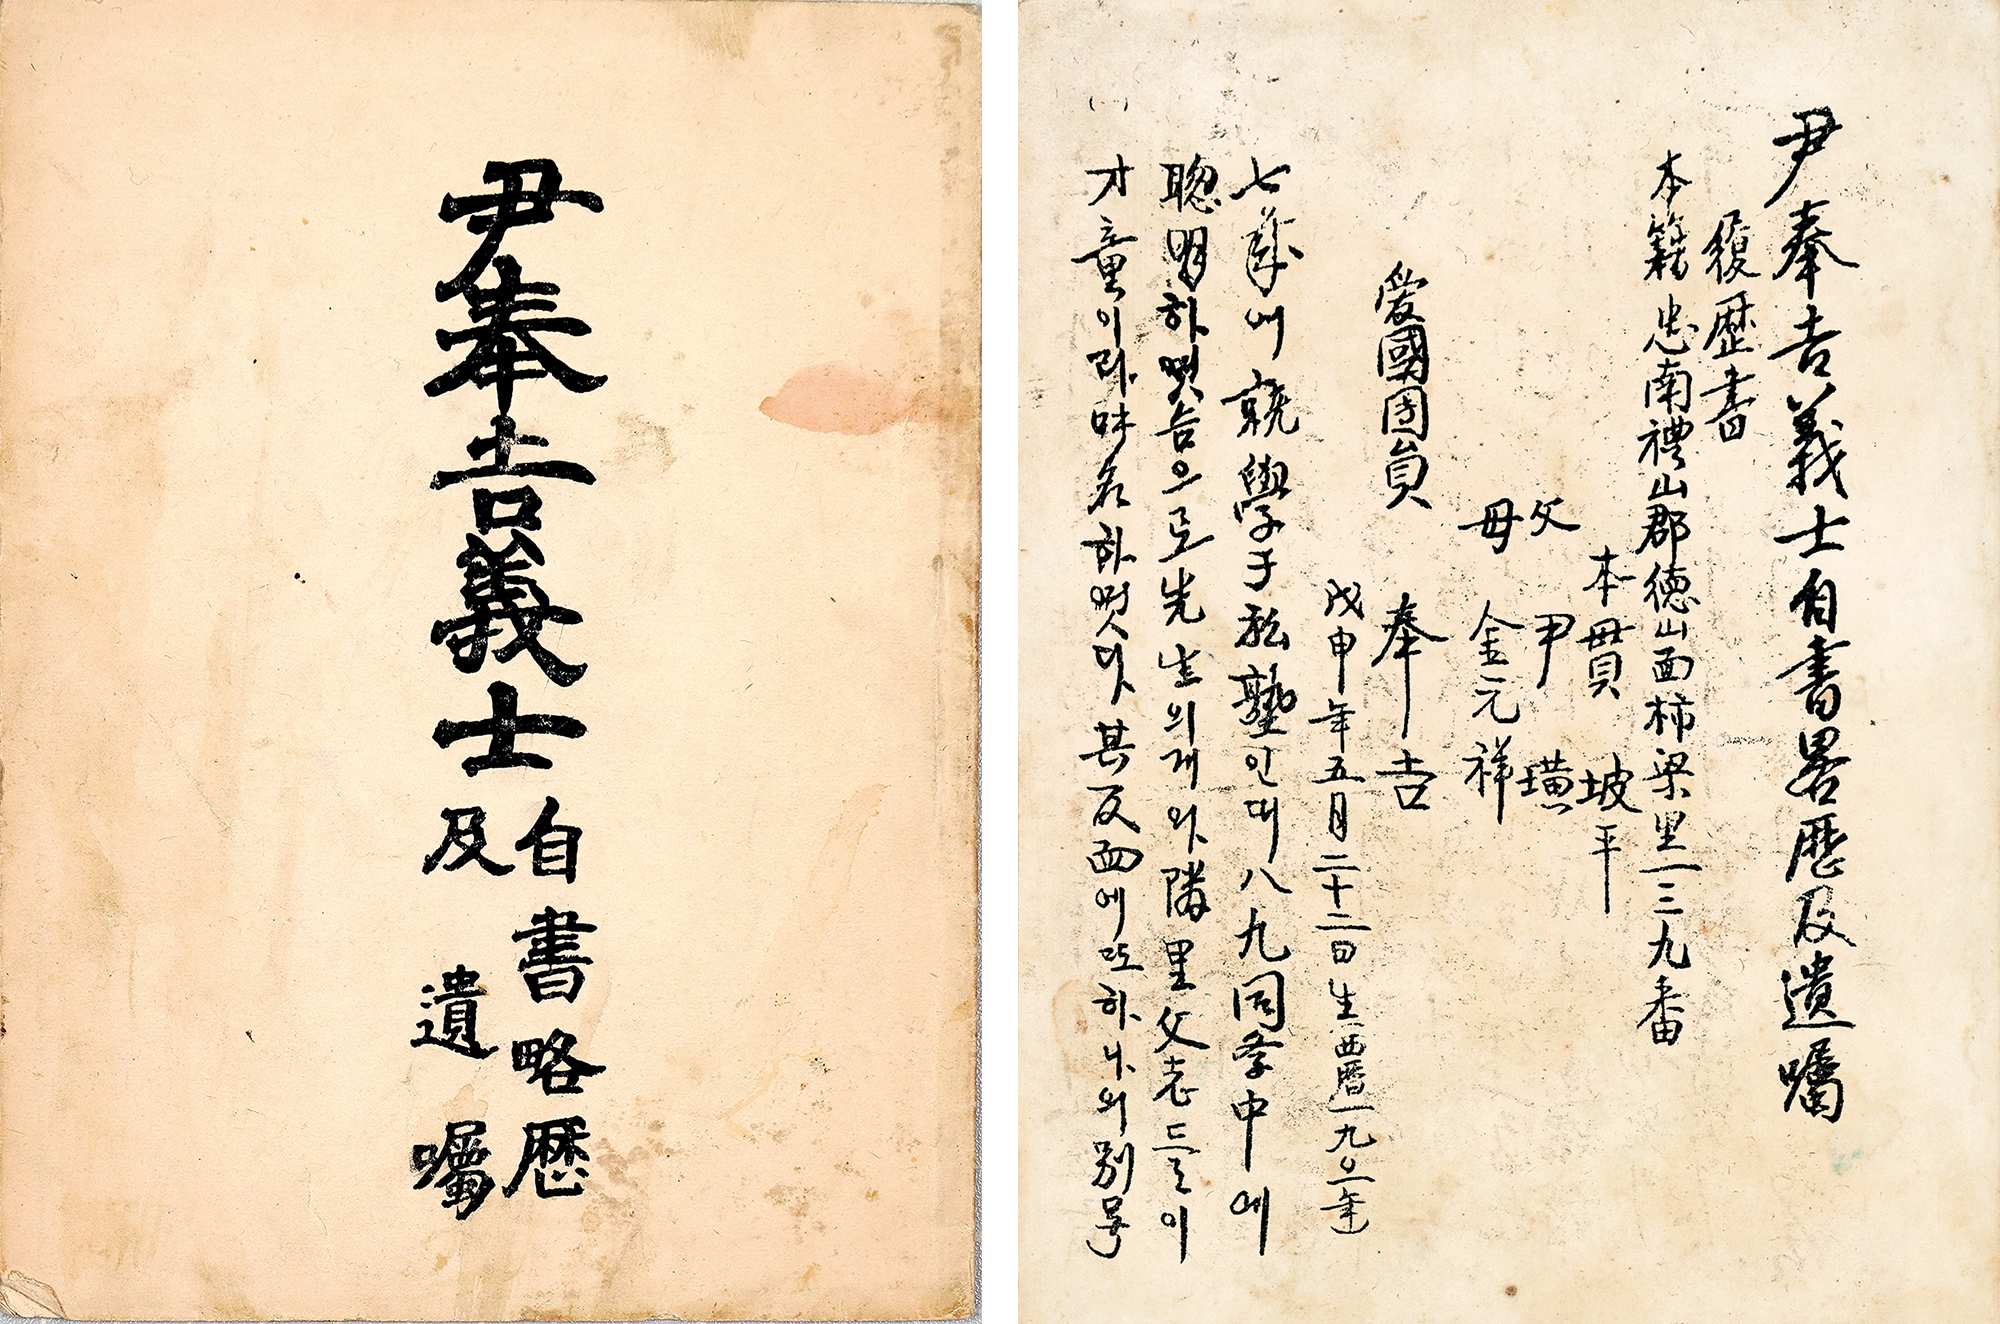 尹奉吉義士
自書略歷
及 遺囑
尹奉吉義士自書畧歷及遺囑
履歷書
本籍 忠南禮山郡德山面柿梁里一三九番
本貫 坡平
父 尹 璜
母 金元祥
愛國団員 奉吉
戊申年五月二十二日生 西曆一九〇 年
七歲에 就學于私塾인대 八九同學中에
聰明하엿슴으로 先生의게와 隣里父老들이
才童이라 味名하엿다 其反面에 또 하나의 別号
(一)